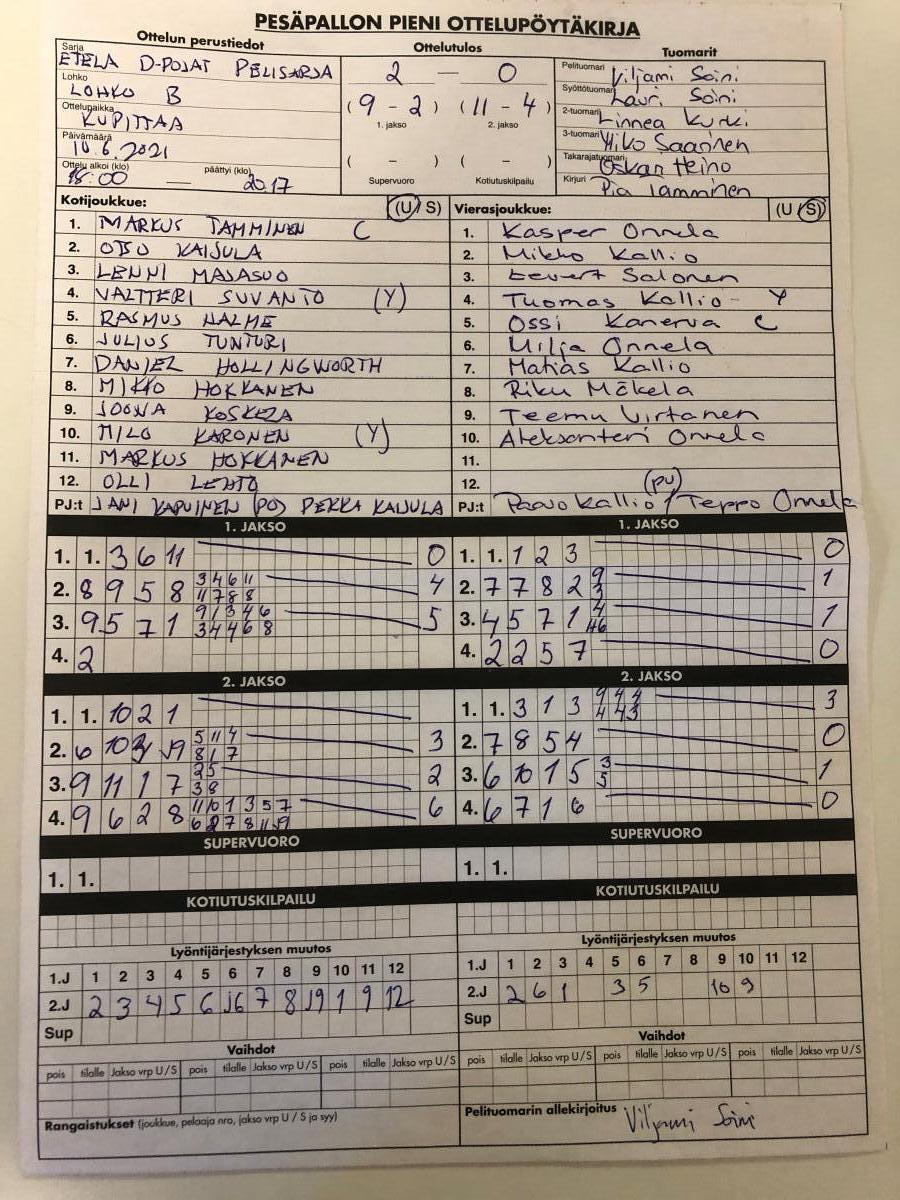 PESÄPALLON PIENI OTTELUPÖYTÄKIRJA
Ottelun perustiedot
Sarja
ETELA D-POJAT PELISARJA
Lohko
LOHKO B
Ottelupaikka
KUPITTAA
Päivämäärä
10.6.2021
Ottelu alkoi (klo) päättyi (klo)
18:00 — 20.17
Ottelutulos
2 — 0
(9 - 2) (11 - 4)
1. jakso 2. jakso
( - ) ( - )
Supervuoro Kotiutuskilpailu
Tuomarit
Pelituomari Viljami Soini
Syöttötuomari Lauri Soini
2-tuomari Linnea Kurki
3-tuomari Miko Saarinen
Takarajatuomari Oskari Heino
Kirjuri Pia Tamminen
Kotijoukkue: (U/S)
1. MARKUS TAMMINEN C
2. OTSO KAIJULA
3. LENNI MAJASUO
4. VALTTERI SUVANTO (Y)
5. RASMUS HALME
6. JULIUS TUNTURI
7. DANIEL HOLLINGWORTH
8. MIKKO HOKKANEN
9. JOONA KOSKELA
10. MILO KARONEN (Y)
11. MARKUS HOKKANEN
12. OLLI LEHTO
PJ:t JANI KARVINEN (PJ) PEKKA KAIJULA
Vierasjoukkue: (U/S)
1. Kasper Onnela
2. Mikko Kallio
3. Eevert Salonen
4. Tuomas Kallio - Y
5. Ossi Kanerva C
6. Milja Onnela
7. Matias Kallio
8. Riku Mäkelä
9. Teemu Virtanen
10. Aleksanteri Onnela
11.
12.
PJ:t Paavo Kallio (PJ) / Teppo Onnela
1. JAKSO
1. 1. 3 6 11 0
2. 8 9 5 8 3 4 6 11 4
11 7 8 8
3. 9 5 7 1 9 1 3 4 6 5
3 4 4 6 8
4. 2
1. JAKSO
1. 1. 1 2 3 0
2. 7 7 8 2 9 1
3
3. 4 5 7 1 4 1
46
4. 2 2 5 7 0
2. JAKSO
1. 1. 10 2 1
2. 6 10 J9 5 11 4 3
8 1 7
3. 9 11 1 7 25 2
38
4. 9 6 2 8 11 10 1 3 5 7 6
7 8 11 J9
2. JAKSO
1. 1. 3 1 3 9 4 4 3
4 4 3
2. 7 8 5 4 0
3. 6 10 1 5 3 1
5
4. 6 7 1 6 0
SUPERVUORO
1. 1.
SUPERVUORO
1. 1.
KOTIUTUSKILPAILU
KOTIUTUSKILPAILU
Lyöntijärjestyksen muutos
1.J 1 2 3 4 5 6 7 8 9 10 11 12
2.J 2 3 4 5 6 J6 7 8 J9 1 9 12
Sup
Lyöntijärjestyksen muutos
1.J 1 2 3 4 5 6 7 8 9 10 11 12
2.J 2 6 1 3 5 10 9
Sup
Vaihdot
pois tilalle Jakso vrp U/S pois tilalle Jakso vrp U/S pois tilalle Jakso vrp U/S
Vaihdot
pois tilalle Jakso vrp U/S pois tilalle Jakso vrp U/S pois tilalle Jakso vrp U/S
Rangaistukset (joukkue, pelaaja nro, jakso vrp U / S ja syy)
Pelituomarin allekirjoitus Viljami Soini